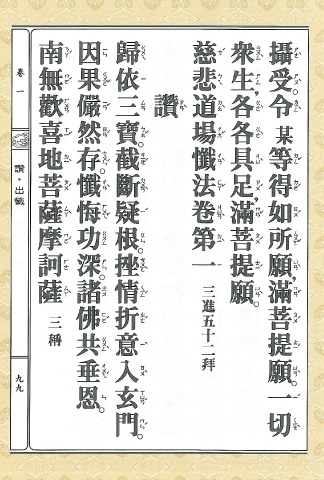 攝受。令某等得如所願。滿菩提願。一切
眾生。各各具足。滿菩提願。
慈悲道場懺法卷第一 三進五十二拜
讚
歸依三寶。截斷疑根。挫情折意入玄門。
因果儼然存。懺悔功深。諸佛共垂恩。
南無歡喜地菩薩摩訶薩 三稱
卷一
讚·出懺
九九